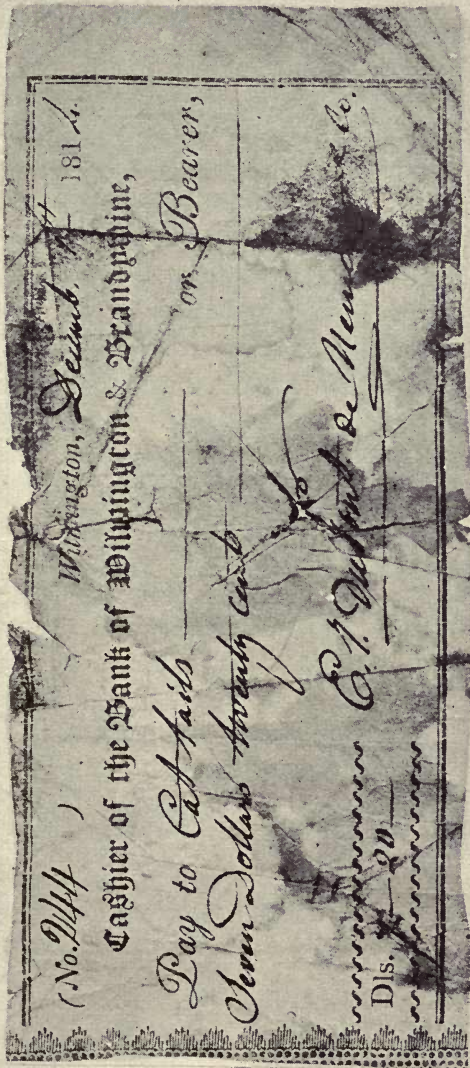 (No. 244)
Wilmington, Decemb. 181
Cashier of the Bank of Wilmington & Brandywine,
Pay to Cat tails or Bearer,
Seven Dollars twenty cents
E. I. DuPont De Nemo Co.
Dls. 7—20—